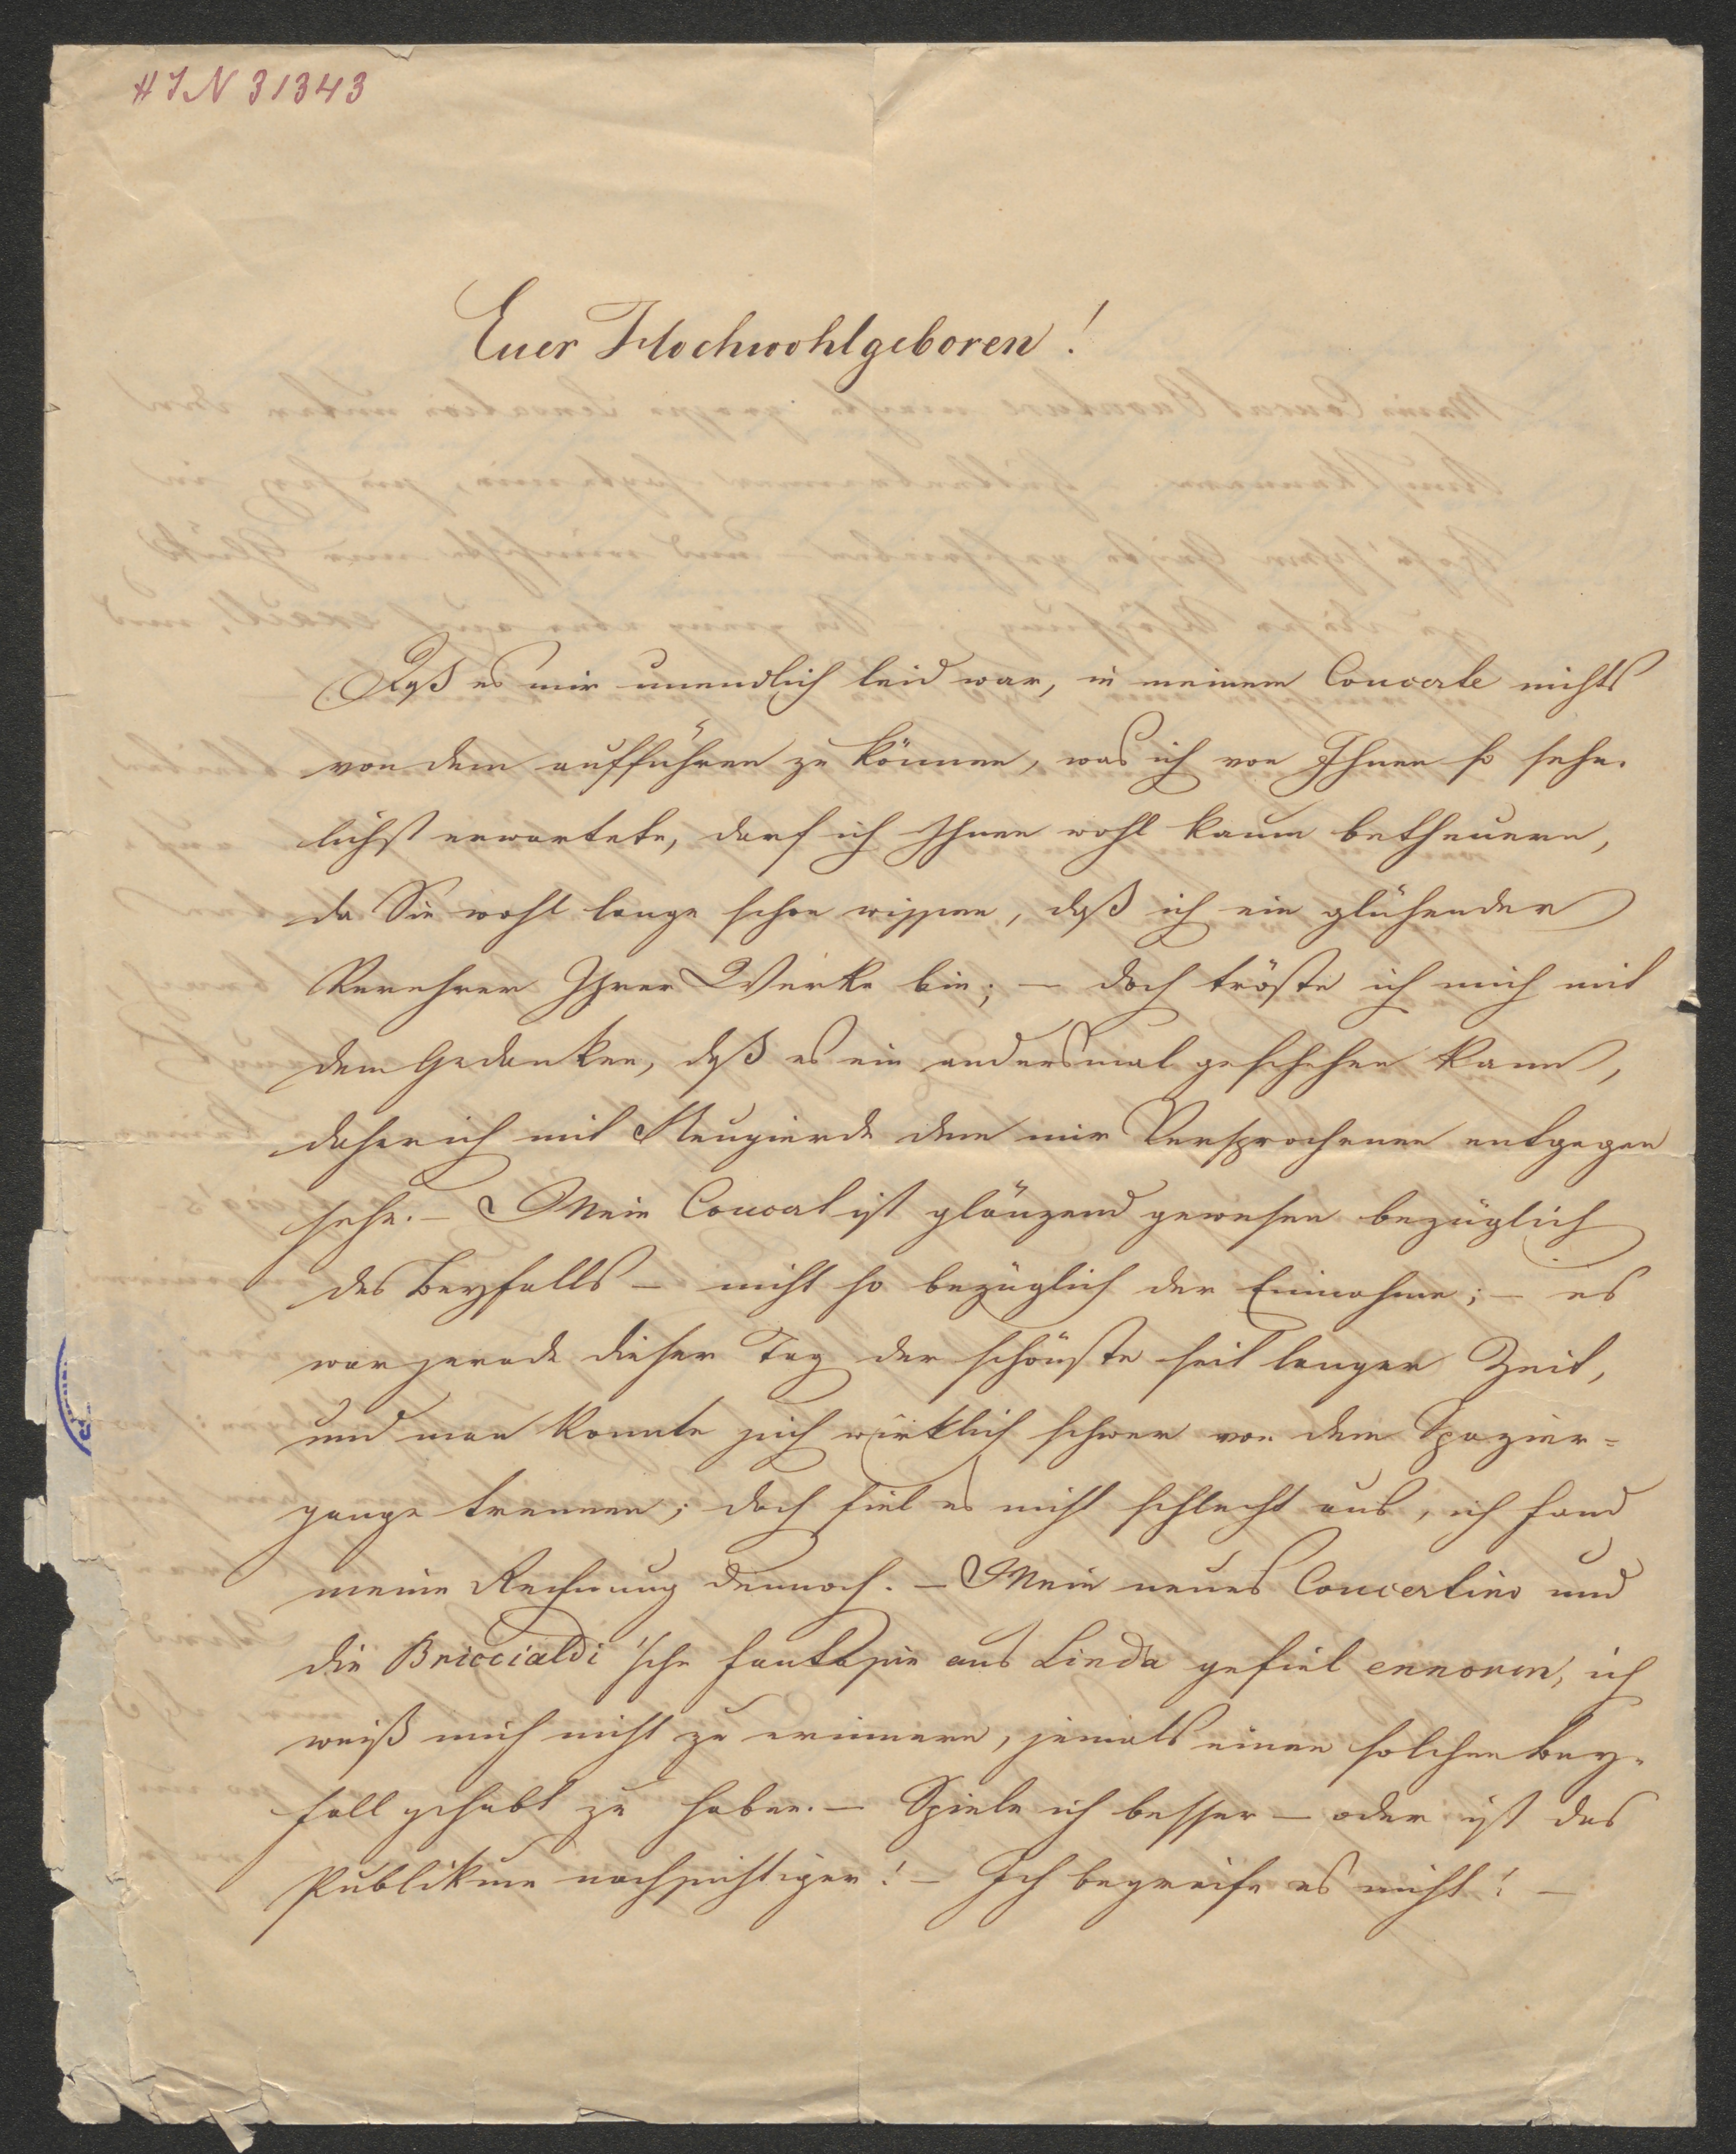 HIN 31343
Euer Hochwohlgeboren!
Daß es mir unendlich leid war, in meinem Concerte nichts
von dem aufführen zu können, was ich von Ihnen so sehn-
lichst erwartete, darf ich Ihnen wohl kaum betheuern,
da Sie wohl lange schon wissen, daß ich ein glühender
Verehrer Ihrer Werke bin; – doch tröste ich mich mit
dem Gedanken, daß es ein andersmal geschehen kann,
daher ich mit Neugierde dem mir Versprochenen entgegen
sehe. – Mein Concert ist glänzend gewesen bezüglich
des Beyfalls – nicht so bezüglich der Einnahme; – es
war gerade dieser Tag der schönste seit langer Zeit,
und man konnte sich wirklich schwer von dem Spazier=
gange trennen; doch fiel es nicht schlecht aus, ich fand
meine Rechnung dennoch. – Mein neues Concertino und
die Briccialdi'sche Fantasie aus Linda gefiel ennorm, ich
weiß mich nicht zu erinnern, jemals einen solchen Bey-
fall gehabt zu haben. – Spiele ich besser – oder ist das
Publikum nachsichtiger! – Ich begreife es nicht! –